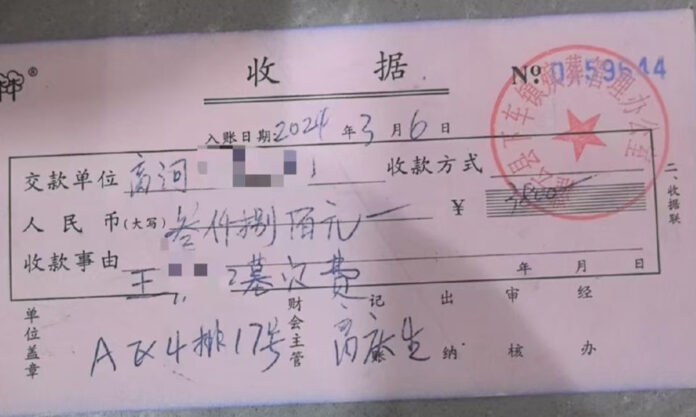 收 据
№ 0 59644
入账日期 2024 年 3 月 6 日
交款单位 高河 收款方式
人民币(大写) 叁仟捌佰元 ¥ 3800
收款事由 王 墓穴费 年 月 日
二、收据联
单位盖章 财会主管 记 出纳 审核 经办
A区4排17号
县下车镇殡葬管理办公室